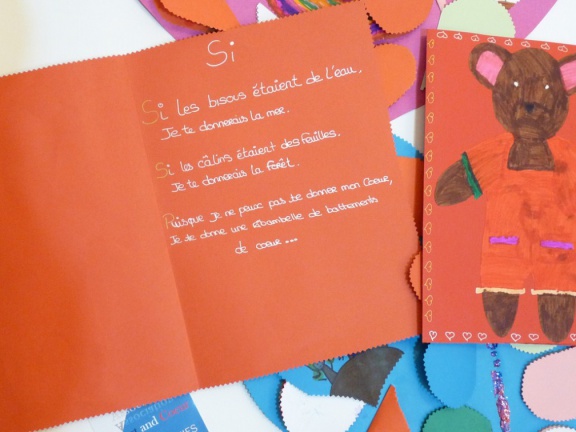 Si
Si les bisous étaient de l'eau,
Je te donnerais la mer.
Si les câlins étaient des feuilles.
Je te donnerais la forêt.
Puisque je ne peux pas te donner mon Coeur,
Je te donne une ribambelle de battements
de coeur...
and